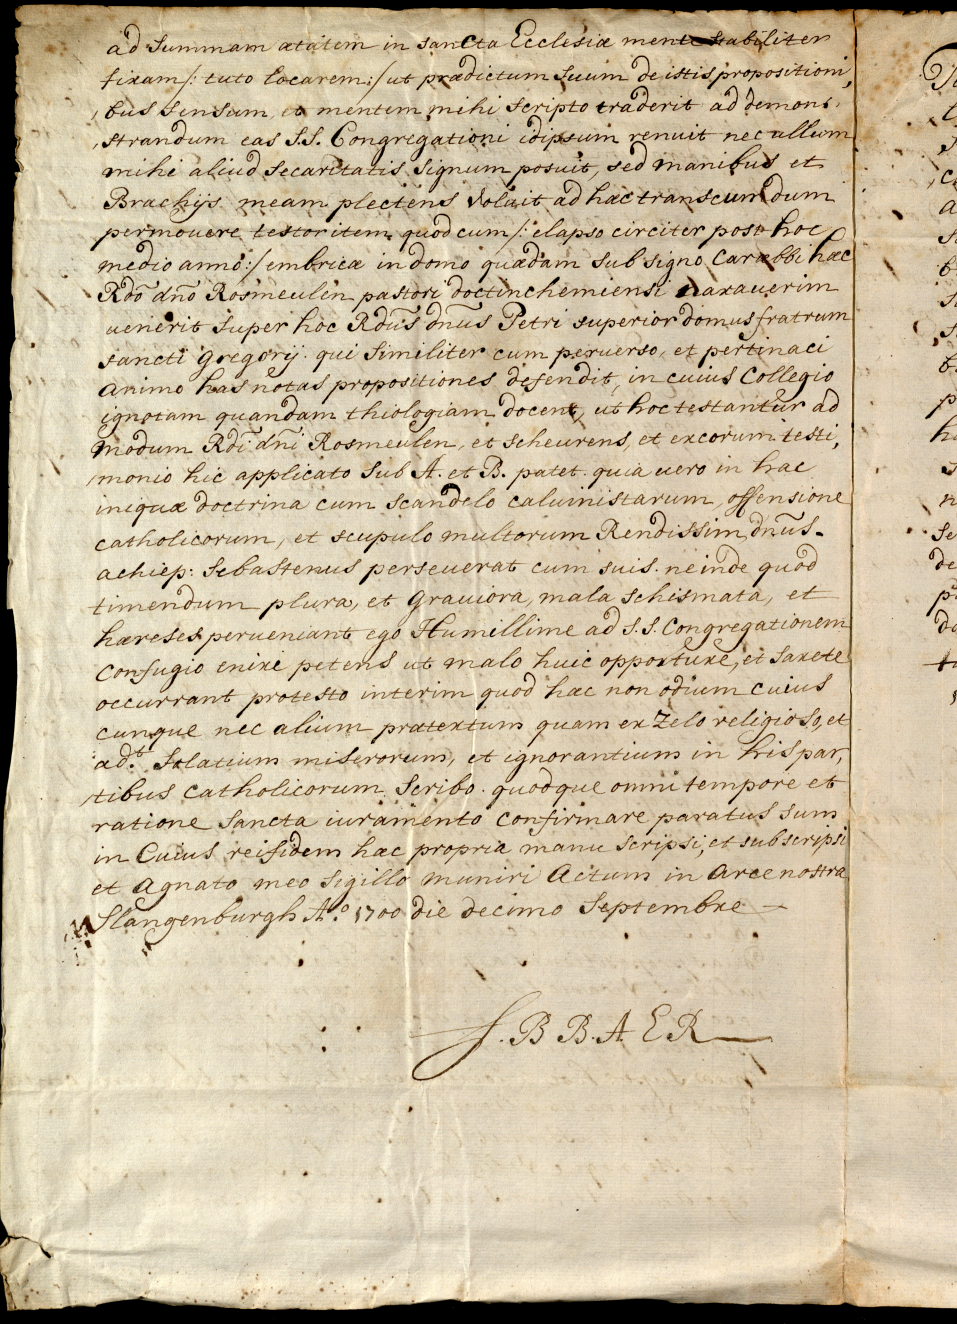 ad summam ætatem in sancta Ecclesiæ mente stabiliter
fixam /: tuto locarem :/ ut prædictum suum de istis propositioni,
,bus sensum, et mentem mihi scripto traderit ad demons,
,strandum eas S.S. Congregationi idipsum renuit nec ullum
mihi aliud secaritatis signum posuit, sed manibus et
Brachijs meam plectens voluit ad hæc transcundum
permovere testor item quod cum /: elapso circiter post hoc
medio anno :/ embricæ in domo quædam sub signo Caræbbi hæc
Rdō dnō Rosmeulen pastori doctinchemiensi naraverim
uenerit super hoc Rdūs dnūs Petri superior domus fratrum
sancti gregorij qui similiter cum peruerso, et pertinaci
animo has notas propositiones defendit, in cuius Collegio
ignotam quandam thiologiam docent, ut hoc testantur ad
modum Rdī dnī Rosmeulen, et scheurens, et excorum testi,
,monio hic applicato sub A. et B. patet quia uero in hac
iniqua doctrina cum scandelo caluinistarum, offensione
catholicorum, et scupulo multorum Rendissim dnūs
achiep: sebastenus perseuerat cum suis ne inde quod
timendum plura, et grauiora, mala schismata, et
hæreses perueniant ego Humillime ad S.S. Congregationem
Confugio enixe petens ut malo huic opportune, et
occurrant protesto interim quod hæc non odium cuius
cunque nec alium prætextum quam ex zelo religioso, et
ad.t Solatium miserorum, et ignorantium in his par,
,tibus catholicorum scribo quodque omni tempore et
ratione sancta iuramento confirmare paratus sum
in Cuius rei fidem hæc propria manu scripsi, et subscripsi
et agnato meo sigillo muniri actum in arce nostra
Slangenburgh A.o 1700 die decimo Septembre —
B B. A E R